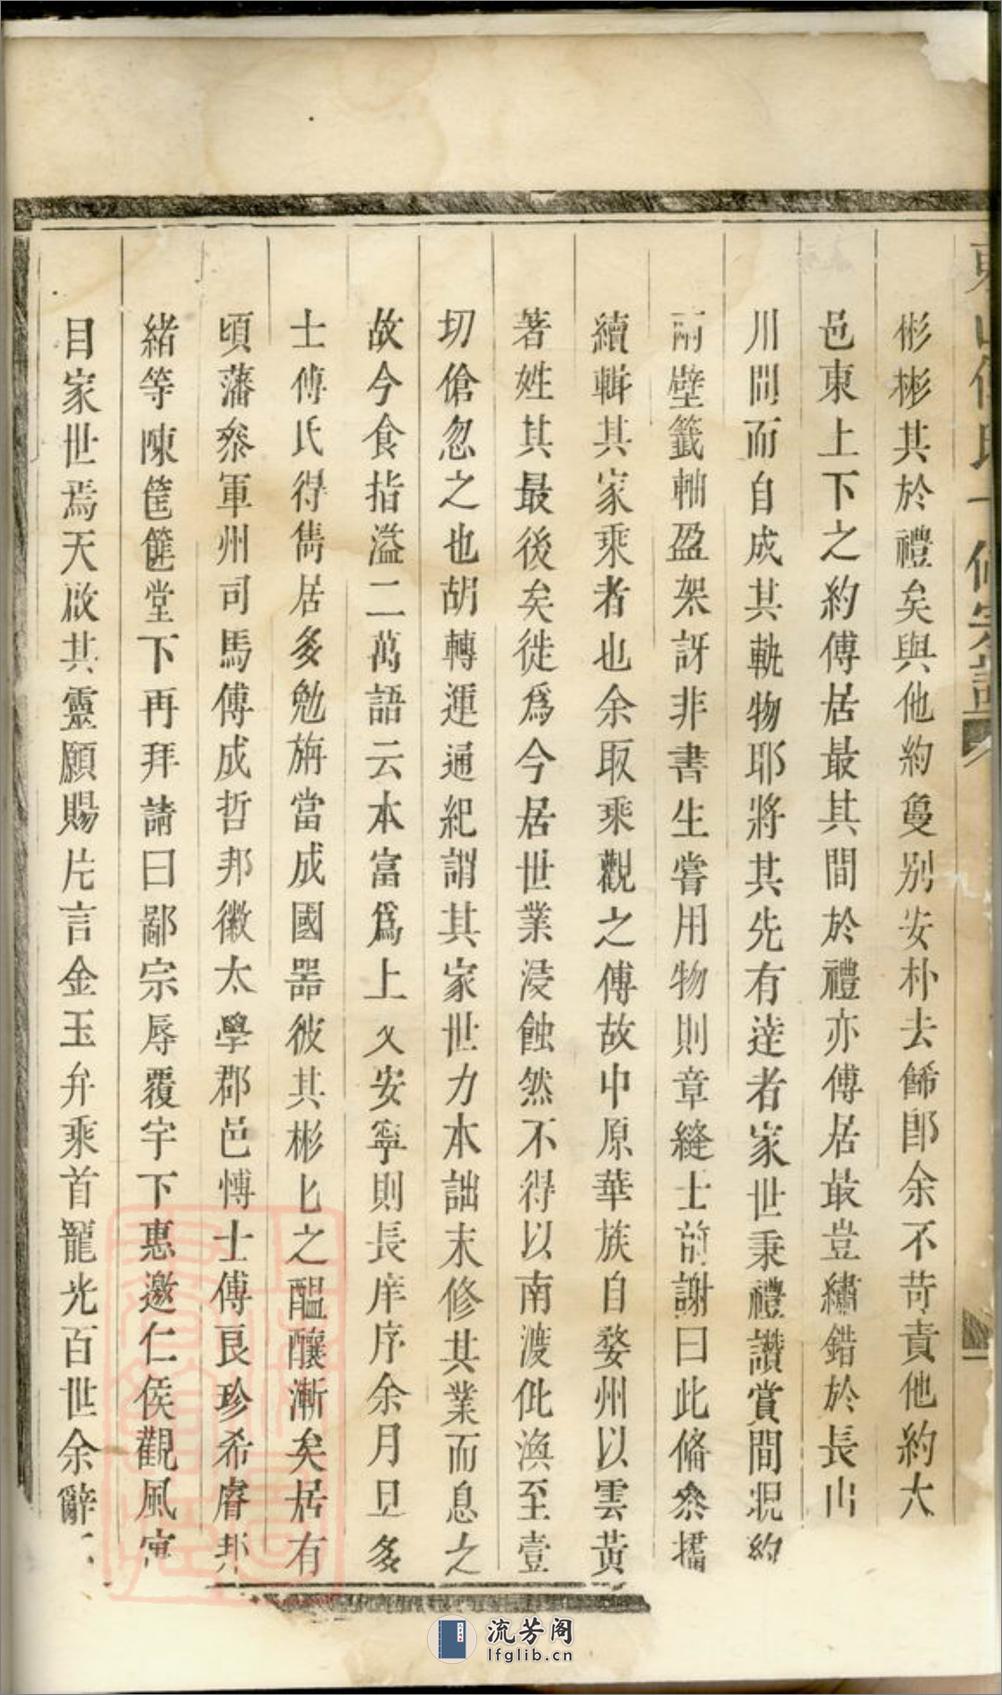 彬彬其於禮矣與他約敻別安朴去餙郎余不苛責他約大
邑東上下之約傅居最其間於禮亦傅居最豈繡錯於長山
川間而自成其軌物耶將其先有逹者家世秉禮讚賞間覌約
兩壁籤軸盈架訝非書生嘗用物則章縫士前謝曰此脩叅攜
續輯其家乘者也余取乘觀之傅故中原華族自婺州以雲黃
著姓其最後矣徙爲今居世業浸蝕然不得以南渡仳渙至壹
切傖忽之也胡轉運通紀謂其家世力本詘末修其業而息之
故今食指溢二萬語云本富爲上久安寧則長庠序余月旦多
士傅氏得雋居多勉旃當成國器彼其彬匕之醞釀漸矣居有
頃藩叅軍州司馬傅成哲邦徽太學郡邑愽士傅良珍希睿邦
緒等陳筐篚堂下再拜請曰鄙宗辱覆宇下惠邀仁侯觀風寅
目家世焉天啟其靈願賜片言金玉弁乘首寵光百世余辭
流芳阁
lfglib.cn